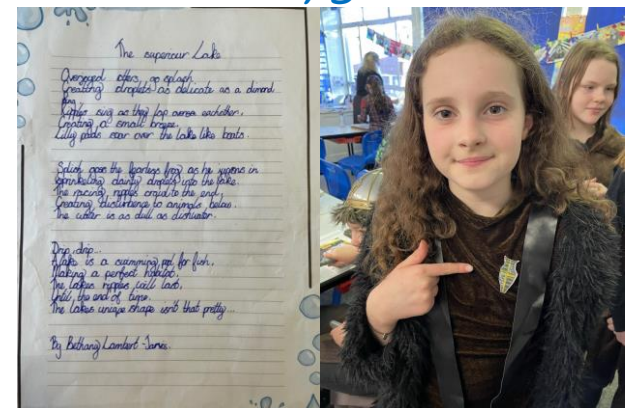 The supercur Lake
Overjoyed otters, go splash
Creating droplets as delicate as a dimond
ring
Ripples sing as they lap over eachother,
Creating a small
Lilly pads soar over the lake like boats.
Splish goes the fearless frog as he in
sprinkeling dainty droplets into the lake.
The racing ripples to the end,
Creating disturbence to animals below.
The water is as dull as dishwater.
Drip, drip...
A lake is a swimming pool for fish,
Making a perfect habitat.
The lakes ripples will last,
Until the end of time.
The lakes shape isn't that pretty...
By Bethany Lambert